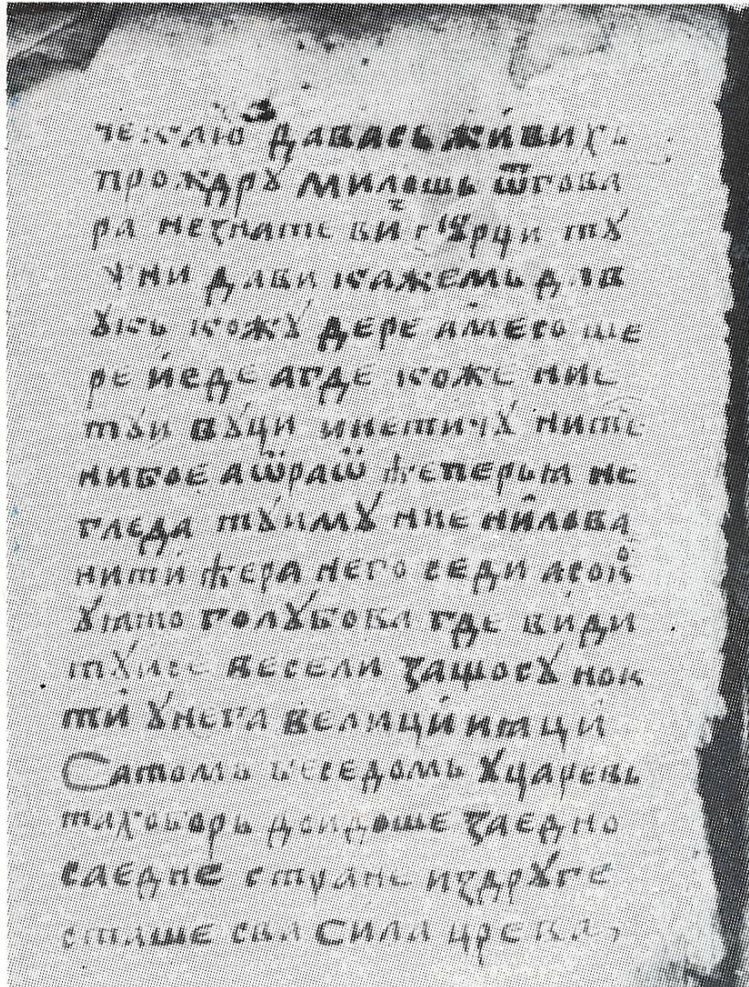 давась живихь
прождрꙋ милошь ѿгова
ра незнате ви тꙋ
ни дави кажемь да в
ꙋкь кожꙋ дере амесо ще
ре неде агде коже ние
тꙋи вꙋци инетичꙋ ните
нибое аѿраѿ ћеперьѧ не
гледа тꙋимꙋ ние нилова
нити ћера него седи
ꙋѧто голꙋбова где види
весели защосꙋ нок
ти ꙋнега велици иѧци
Сатомь беседомь ꙋцаревь
доидоше заедно
саедне стране издрꙋге
сташе сва сила црева,